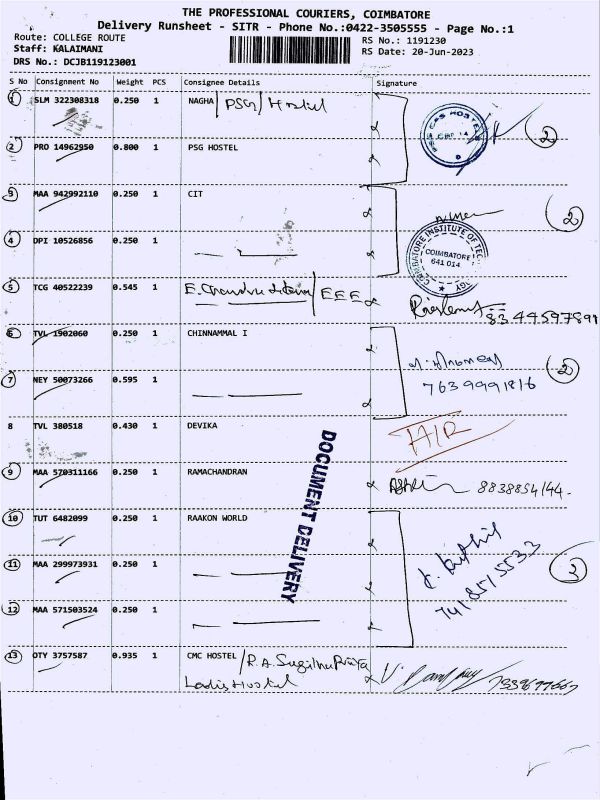 THE PROFESSIONAL COURIERS, COIMBATORE
Delivery Runsheet - SITR - Phone No.:0422-3505555 - Page No.:1
Route: COLLEGE ROUTE
Staff: KALAIMANI
DRS No.: DCJB119123001
RS No.: 1191230
RS Date: 20-Jun-2023
S No Consignment No Weight PCS Consignee Details Signature
1 SLM 322308318 0.250 1 NAGHA / PSG / Hostel
2 PRO 14962950 0.800 1 PSG HOSTEL
2
3 MAA 942992110 0.250 1 CIT
2
4 DPI 10526856 0.250 1
COIMBATORE INSTITUTE OF TECHNOLOGY
COIMBATORE
641 014
5 TCG 40522239 0.545 1 E. / EEE
8344597899
6 TVL 1902060 0.250 1 CHINNAMMAL I
2
7 NEY 50073266 0.595 1
7639991816
8 TVL 380518 0.430 1 DEVIKA
DOCUMENT DELIVERY
9 MAA 570311166 0.250 1 RAMACHANDRAN
10 TUT 6482099 0.250 1 RAAKON WORLD
11 MAA 299973931 0.250 1
3
12 MAA 571503524 0.250 1
13 OTY 3757587 0.935 1 CMC HOSTEL / R.A.
Ladies Hostel